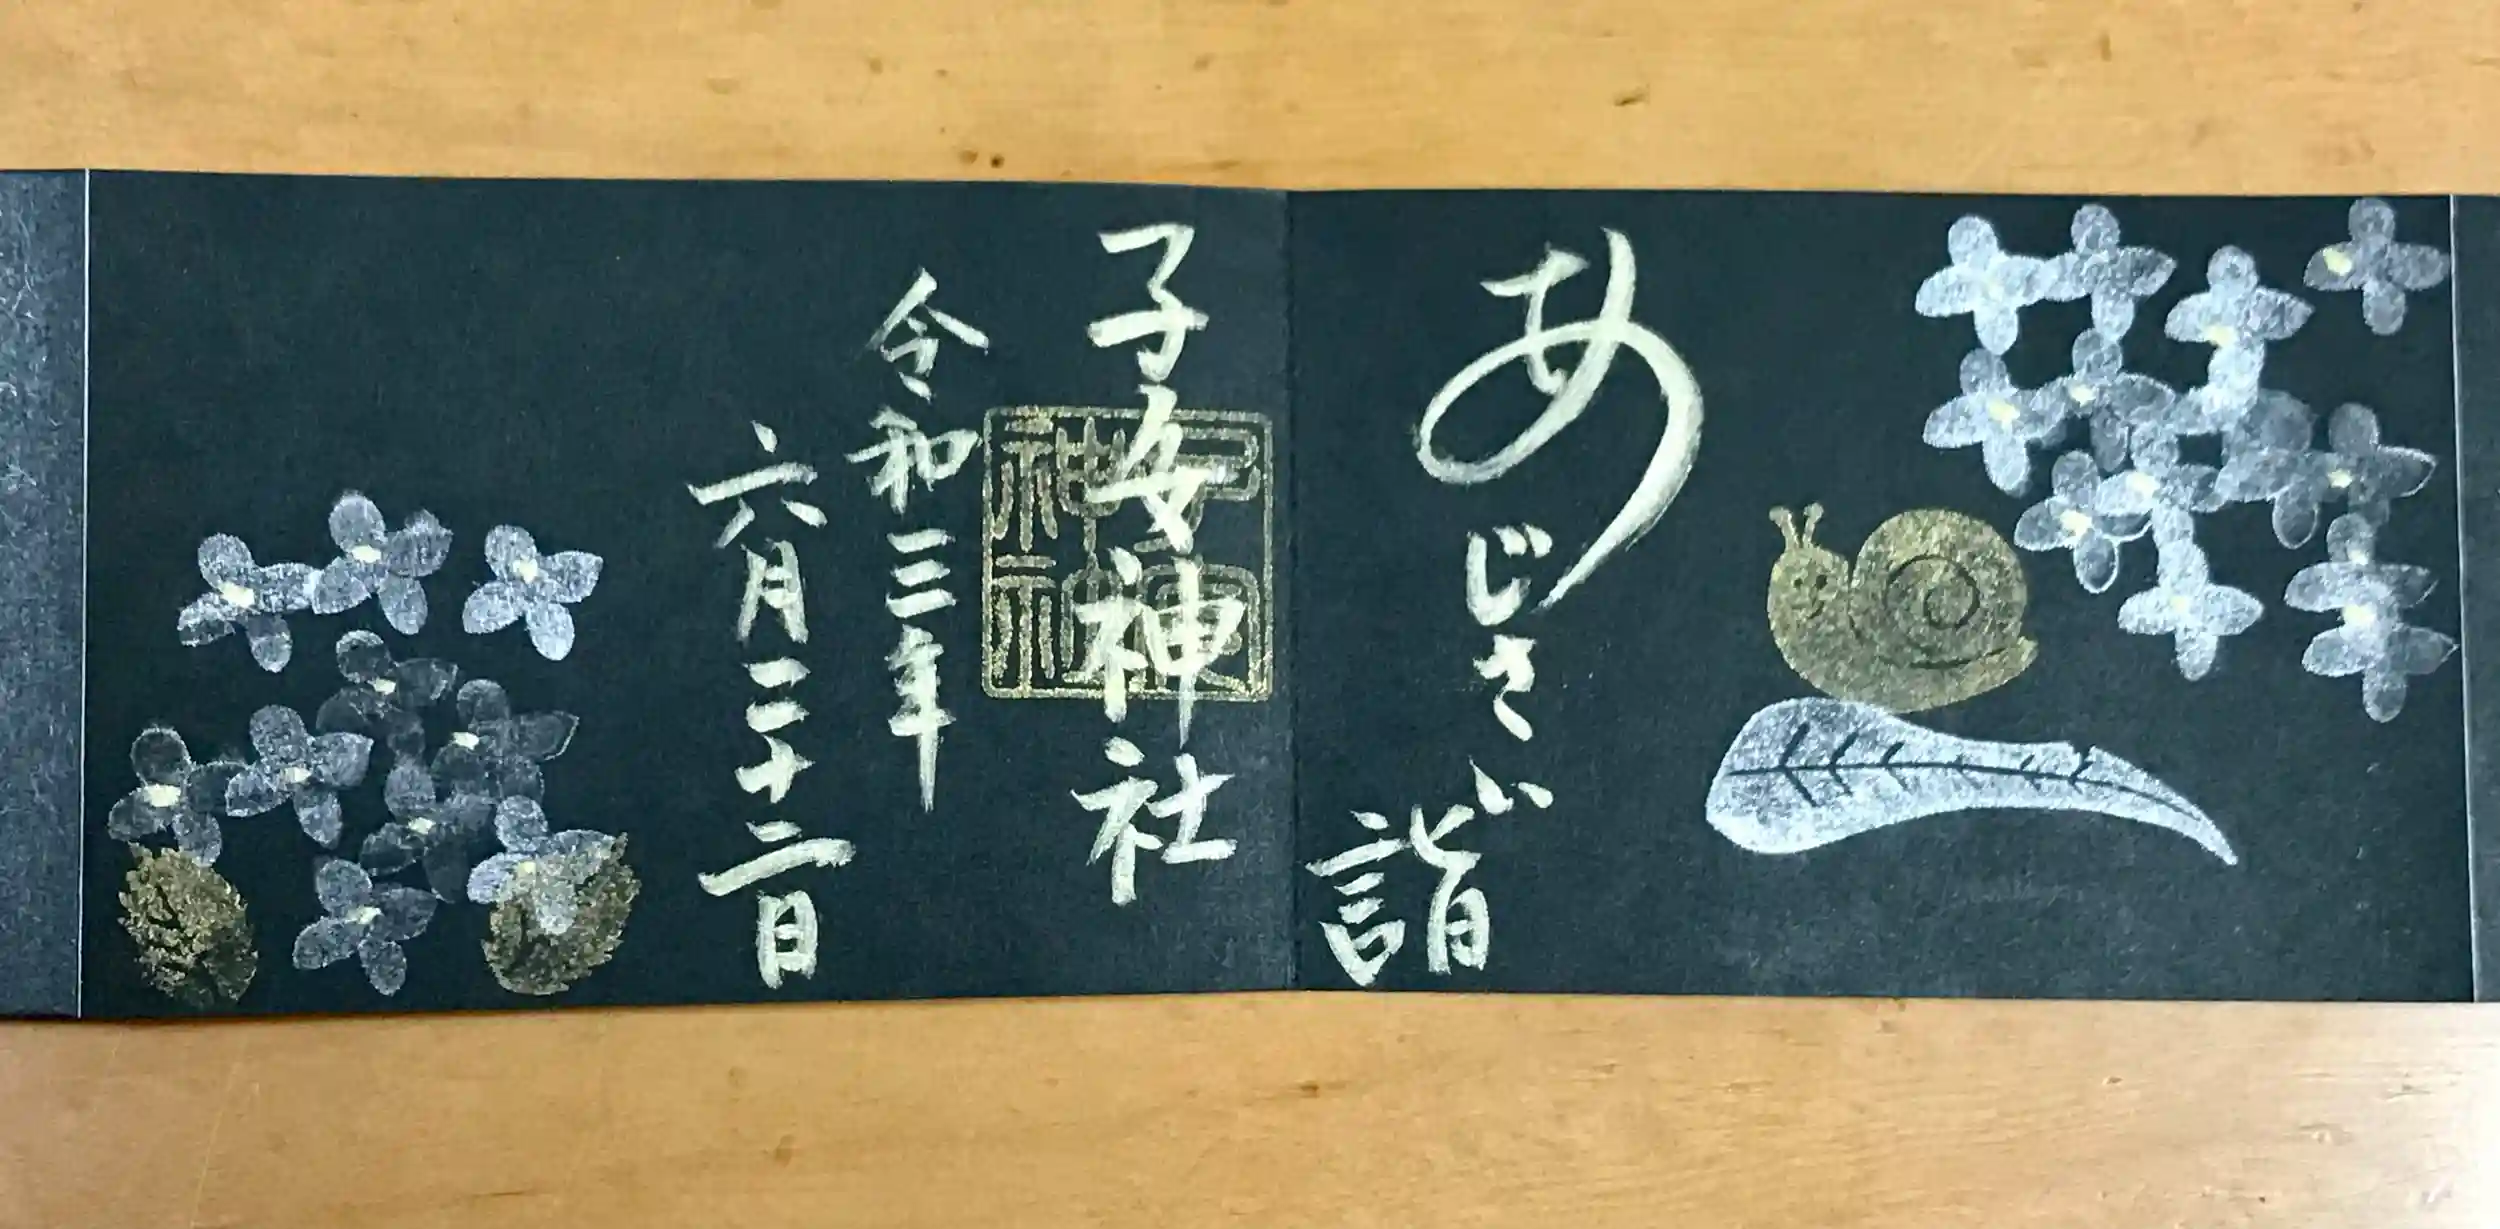 あじさい詣
子安神社
子安神社
令和三年
六月二十二日